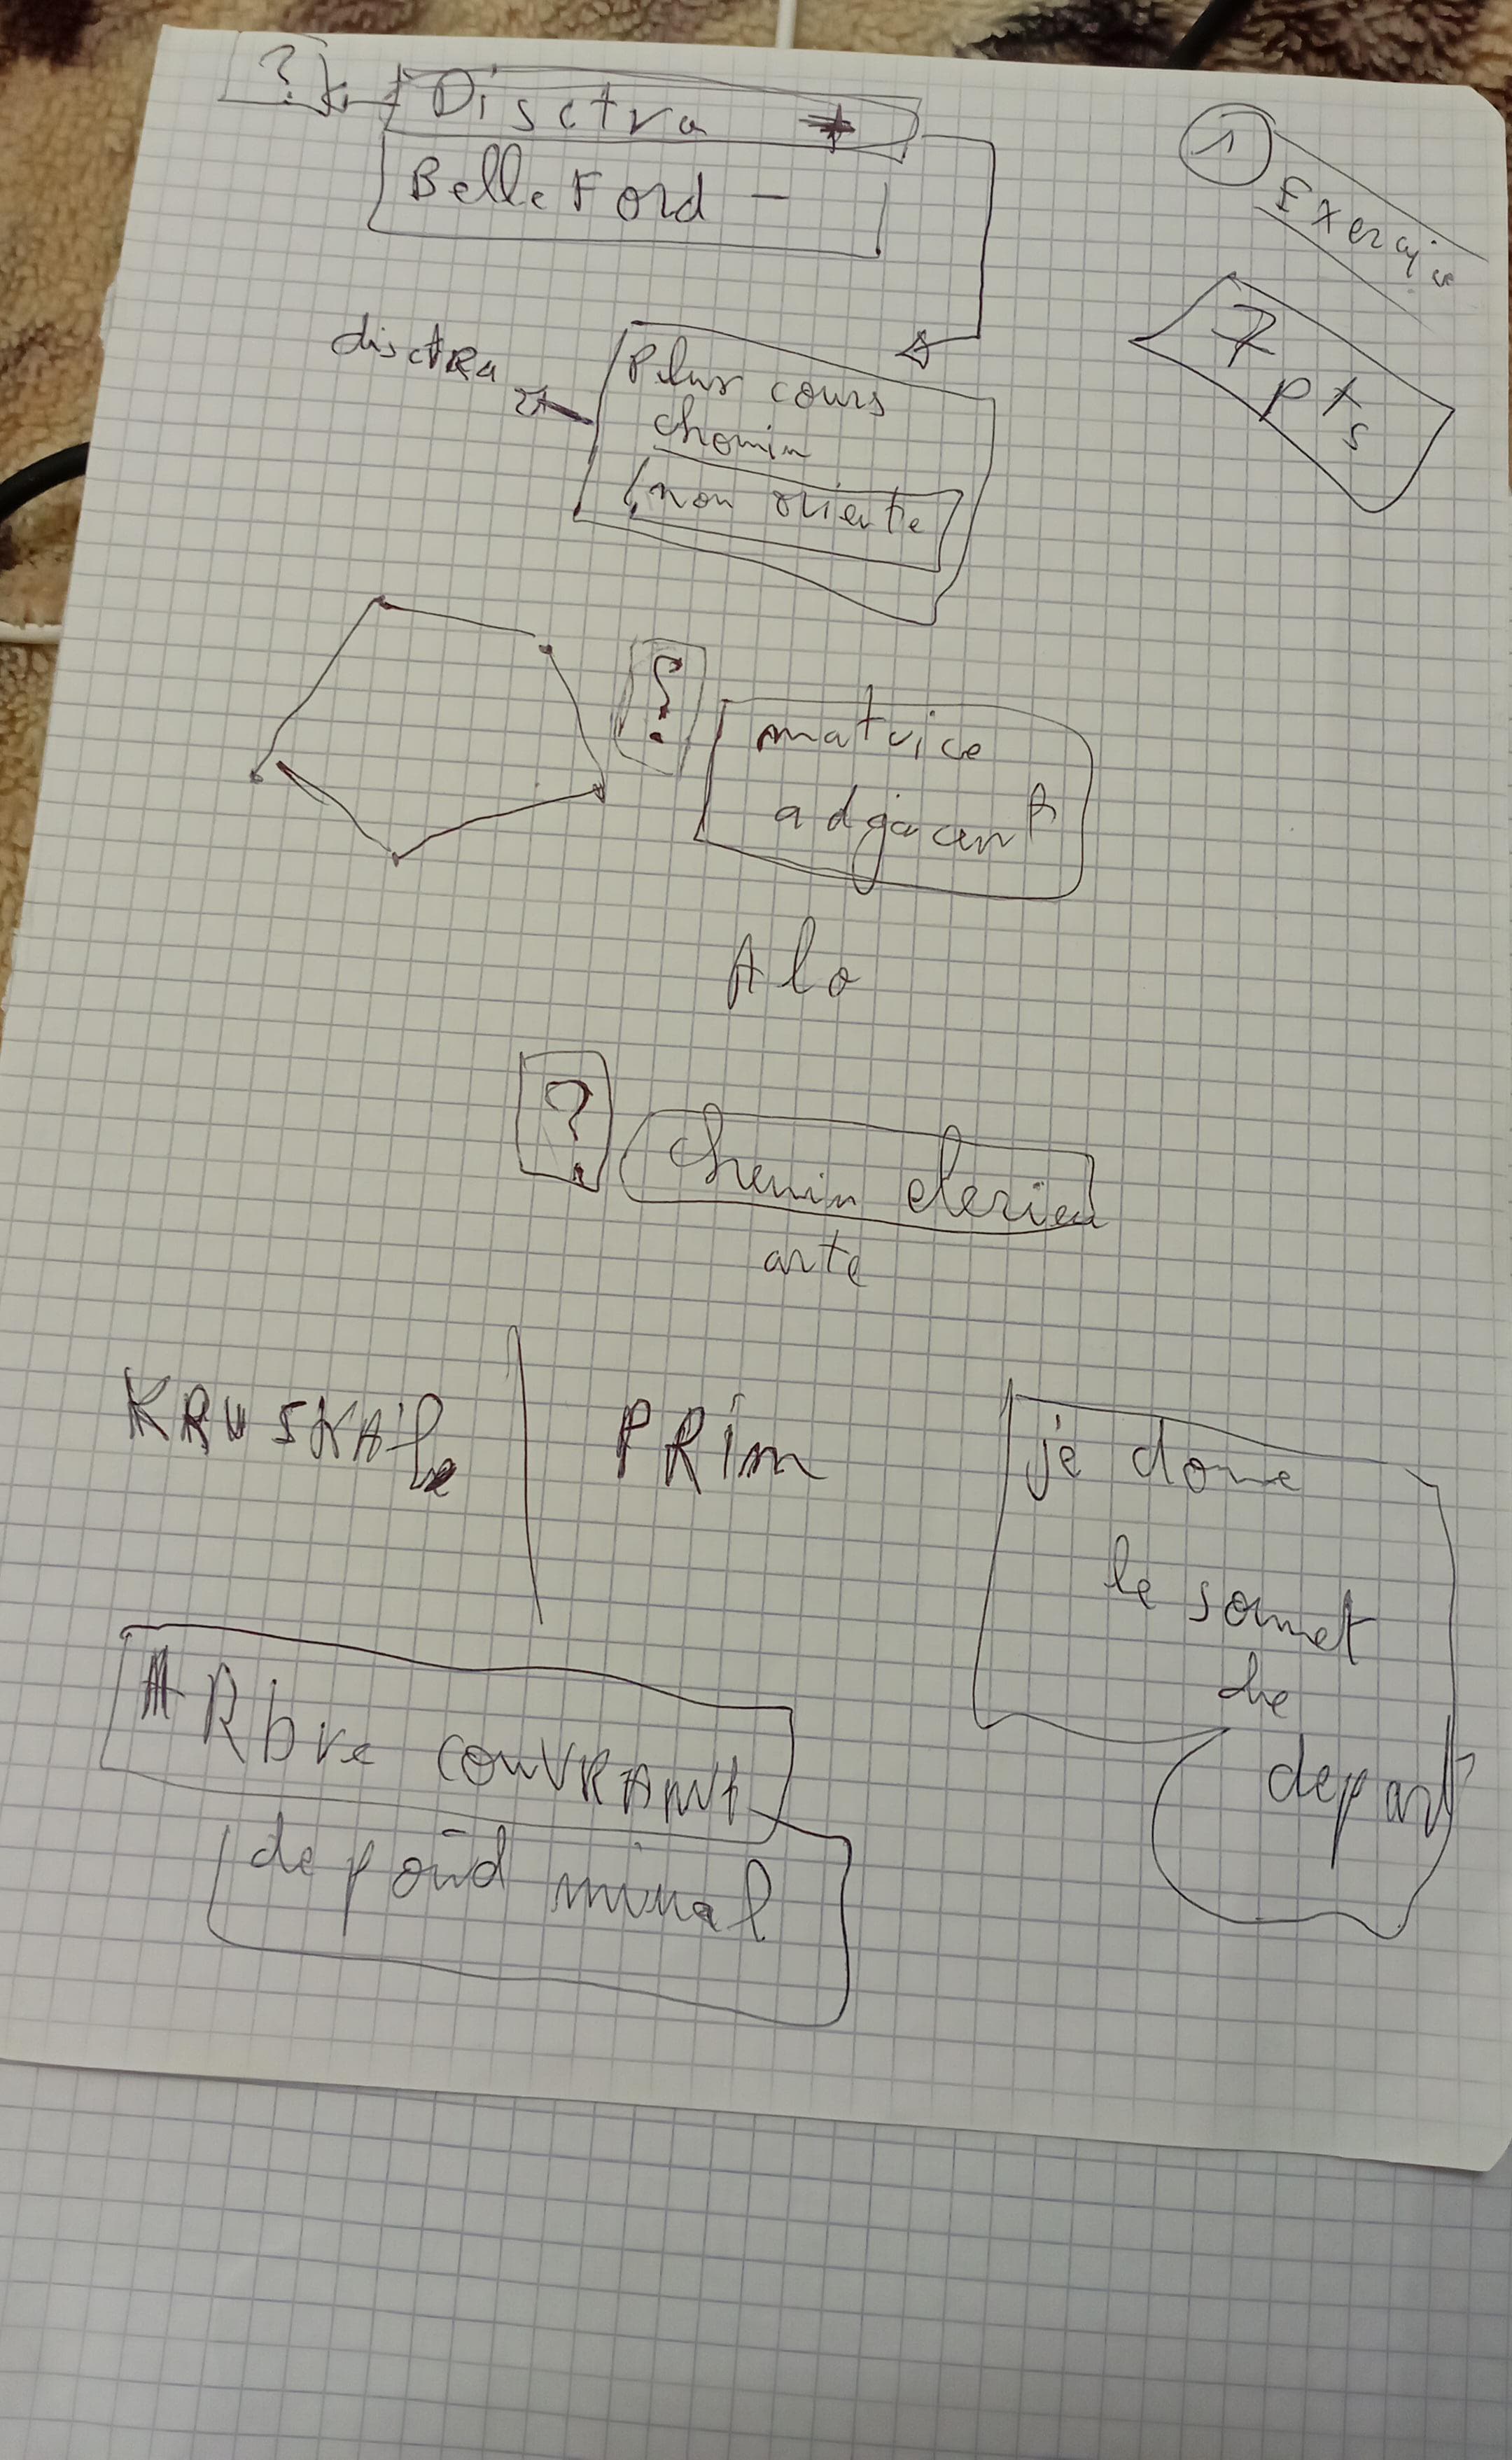 ?
Disctra +
Belle Ford -
1
Exercice
7
pts
disctRa
Plus cours
chemin
non oriente
?
matrice
adjacent
Alo
?
chemin elerien
arte
KRUSKAle
PRim
je done
le somet
de
depart
ARbre couvRAnt
de poid minal